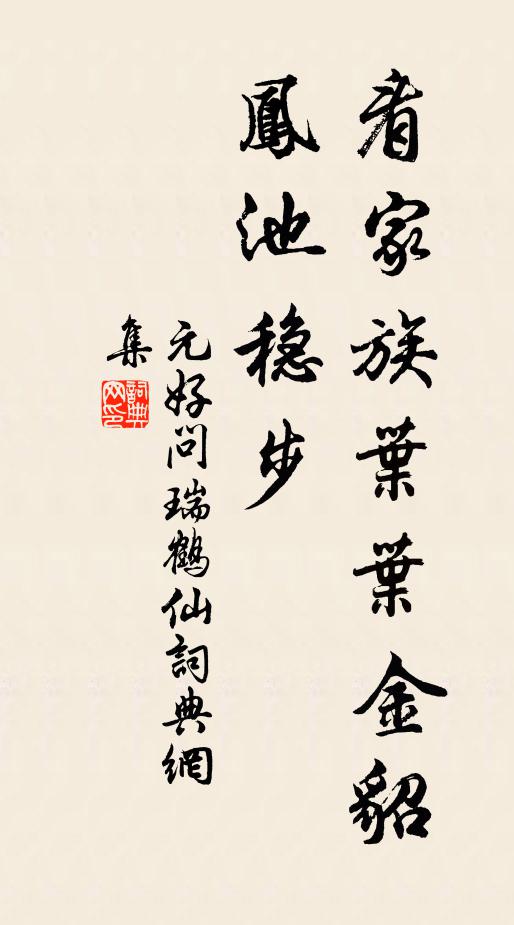 看家族葉葉金貂
鳳池穏步
元好问瑞鶴仙詞典網
集
詞典
网印